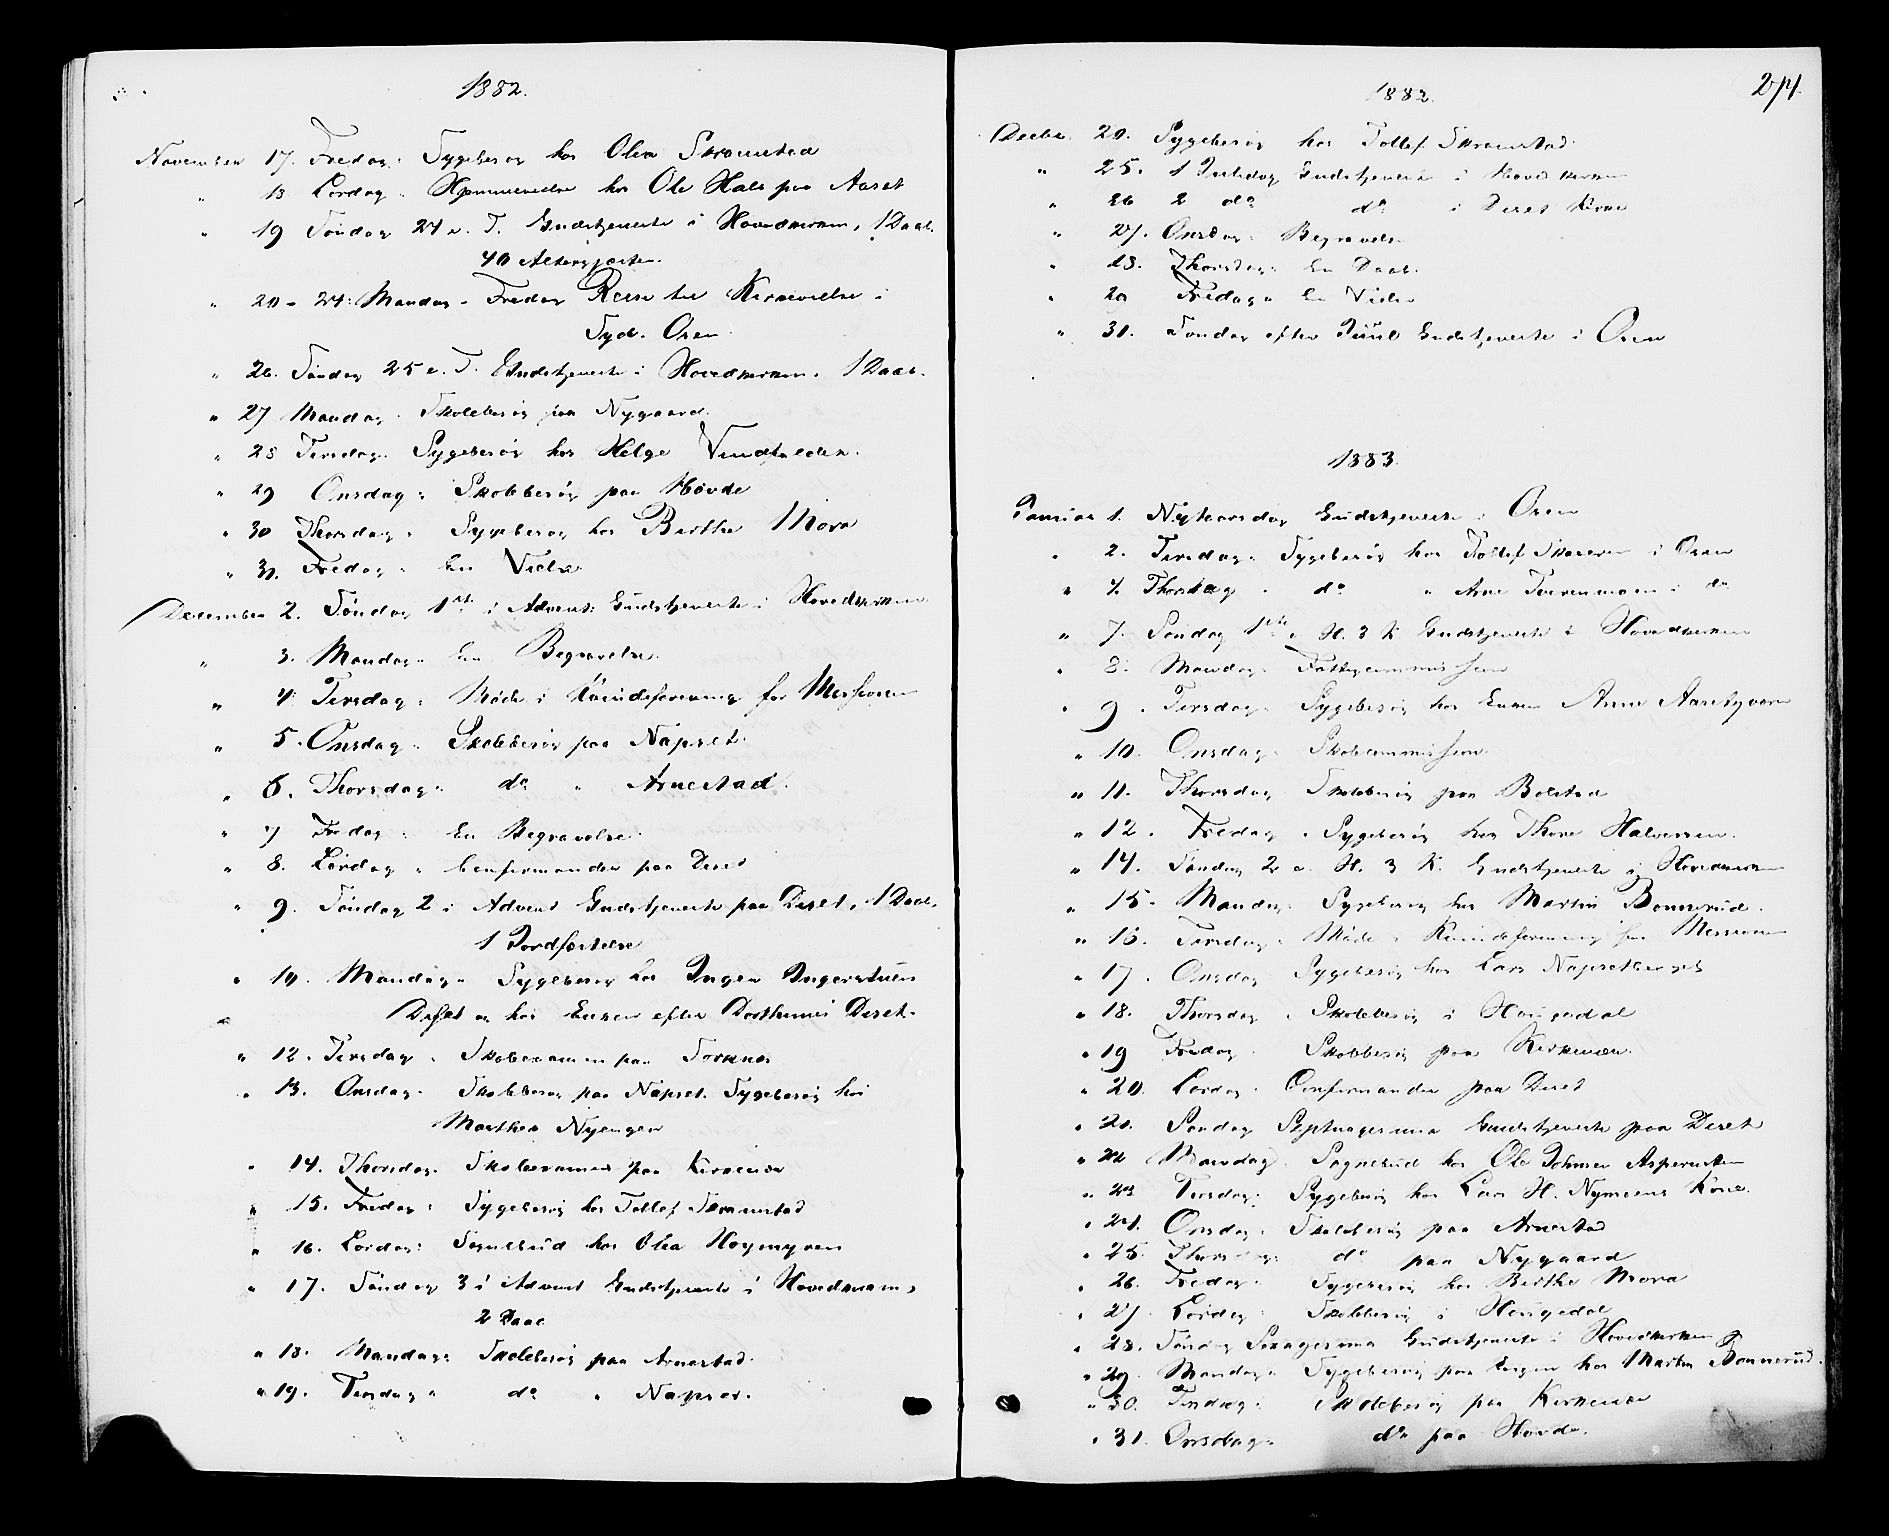 1882.
November 17. Fredag: Sygebesøg hos Olea Skramstad
" 18 Lørdag: Hjemmevielse hos Ole Hals paa Aaset
" 19 Søndag 24 e. T. Gudstjeneste i Hovedkirken, 1 Daab.
40 Altergjæster.
" 20 - 24: Mandag - Fredag Reise til Kirkevielse i
Synd. Osen.
" 26. Søndag 25 e. T. Gudstjeneste i Hovedkirken. 1 Daab.
" 27 Mandag: Skolebesøg paa Nygaard.
" 28 Tirsdag: Sygebesøg hos Helge
" 29 Onsdag: Skolebesøg paa Hovde
" 30 Thorsdag: Sygebesøg hos Berthe Mora
" 31. Fredag: En Vielse.
December 2. Søndag 1ste i Advent: Gudstjeneste i Hovedkirken
" 3. Mandag: En Begravelse.
" 4. Tirsdag: Møde i Kvindeforening for Missionen
" 5. Onsdag: Skolebesøg paa Napset.
" 6. Thorsdag: do " Arnestad.
" 7 Fredag: En Begravelse.
" 8. Lørdag: Confirmander paa Deset
" 9. Søndag 2 i Advent Gudstjeneste paa Deset, 1 Daab,
1 Jordfæstelse
" 10. Mandag: Sygebesøg hos Inger Ingerstuen
Deset og hos Enken efter Deset.
" 12. Tirsdag: Skoleexamen paa
" 13. Onsdag: Skolebesøg paa Napset. Sygebesøg hos
Marthea Nyengen
" 14. Thorsdag: Skoleexamen paa Kirkenær
" 15. Fredag: Sygebesøg hos Tollef Skramstad
" 16. Lørdag: Sognebud hos Olea Høymyren
" 17. Søndag 3 i Advent Gudstjeneste i Hovedkirken,
2 Daab
" 18. Mandag: Skolebesøg paa Arnestad.
" 19. Tirsdag: do " Napset.
274.
1882.
Decbr. 20. Sygebesøg hos Tollef Skramstad.
" 25. 1 Juledag Gudstjeneste i Hovedkirken
" 26 2 do do i Deset Kirke
" 27. Onsdag: Begravelse
" 28. Thorsdag: En Daab.
" 29 Fredag: En Vielse
" 31. Søndag efter Juul Gudstjeneste i Osen
1883.
Januar 1. Nytaarsdag Gudstjeneste i Osen
" 2. Tirsdag: Sygebesøg hos Tollef i Osen
" 4. Thorsdag: do " Arne i do
" 7. Søndag 1ste e. H. 3 K. Gudstjeneste i Hovedkirken
" 8. Mandag: Fattigcommission
" 9. Tirsdag: Sygebesøg hos Enken Anne
" 10. Onsdag: Skolecommission.
" 11. Thorsdag Skolebesøg paa Bolstad
" 12. Fredag: Sygebesøg hos Thore Halvorsen.
" 14. Søndag 2 e. H. 3 K. Gudstjeneste i Hovedkirken
" 15. Mandag: Sygebesøg hos Martin Bonnerud.
" 16. Tirsdag: Møde i Kvindeforening for Missionen
" 17. Onsdag Sygebesøg hos Lars Napsetberget
" 18. Thorsdag: Skolebesøg i Haugedal
" 19 Fredag: Skolebesøg paa Kirkenær.
" 20. Lørdag: Confirmander paa Deset
" 21. Søndag Septuagesima Gudstjeneste paa Deset
" 22 Mandag: Sognebud hos Ole Johnsen
" 23 Tirsdag: Sygebesøg hos Lars H. Nymoens Kone.
" 24. Onsdag: Skolebesøg paa Arnestad
" 25. Thorsdag: do paa Nygaard
" 26. Fredag: Sygebesøg hos Berthe Mora
" 27. Lørdag: Skolebesøg i Haugedal
" 28. Søndag Sexagesima Gudstjeneste i Hovedkirken
" 29. Mandag: Sygebesøg paa hos Martin Bonnerud.
" 30. Tirsdag: Skolebesøg paa Kirkenær
" 31. Onsdag: do paa Hovde.